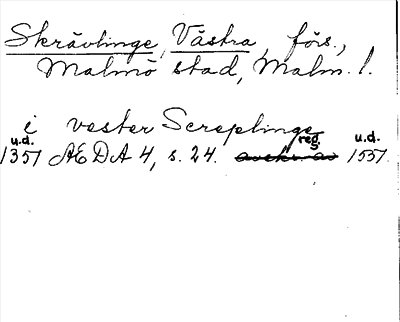 Skrävlinge, Västra, förs.,
Malmö stad, Malm. l.
i vester Screplinge
u.d. reg. u.d.
1351 ÆDA 4, s. 24. 1551.